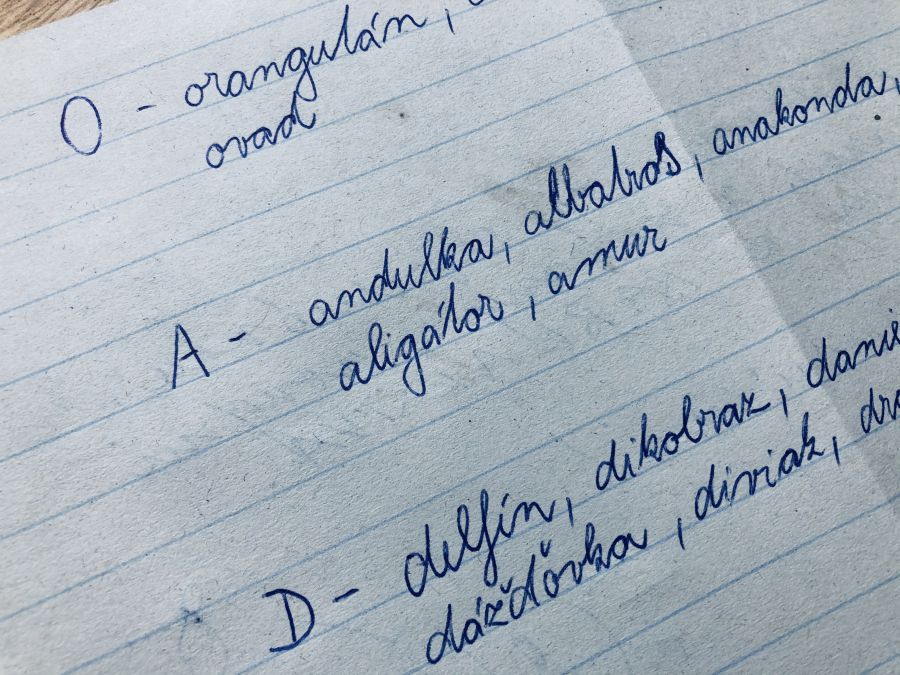 O - orangután,
ovad
A - andulka, albatros, anakonda,
aligátor, amur
D - delfín, dikobraz,
dážďovka, diviak,